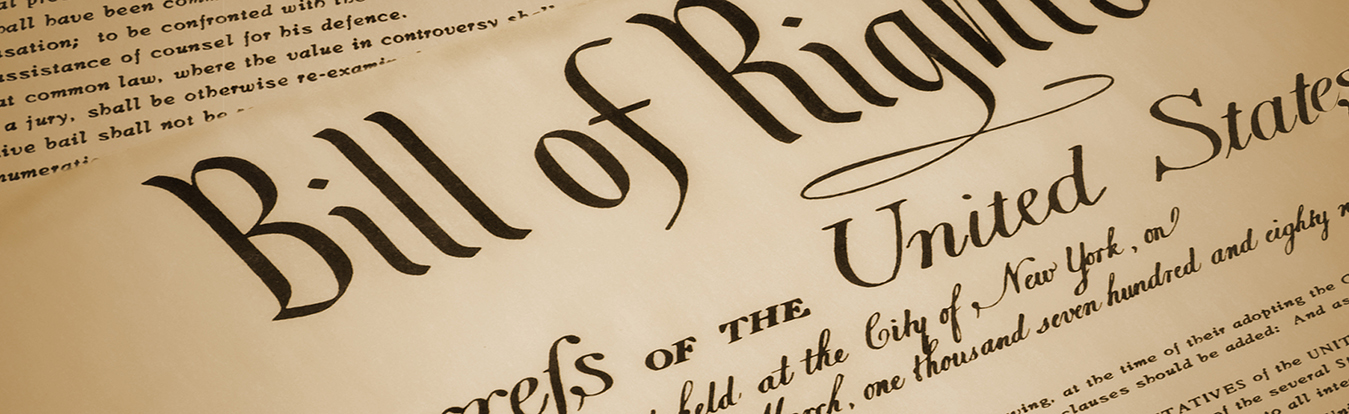 hall have been
sation; to be confronted with the
assistance of counsel for his defence.
at common law, where the value in controversy
a jury, shall be otherwise
ive bail shall not be
Bill of Rights
Congreſs OF THE United States
held at the City of New York, on
March, one thousand seven hundred and eighty
at the time of their adopting the
clauses should be added: And as
TATIVES of the UNIT
of the several
all inte